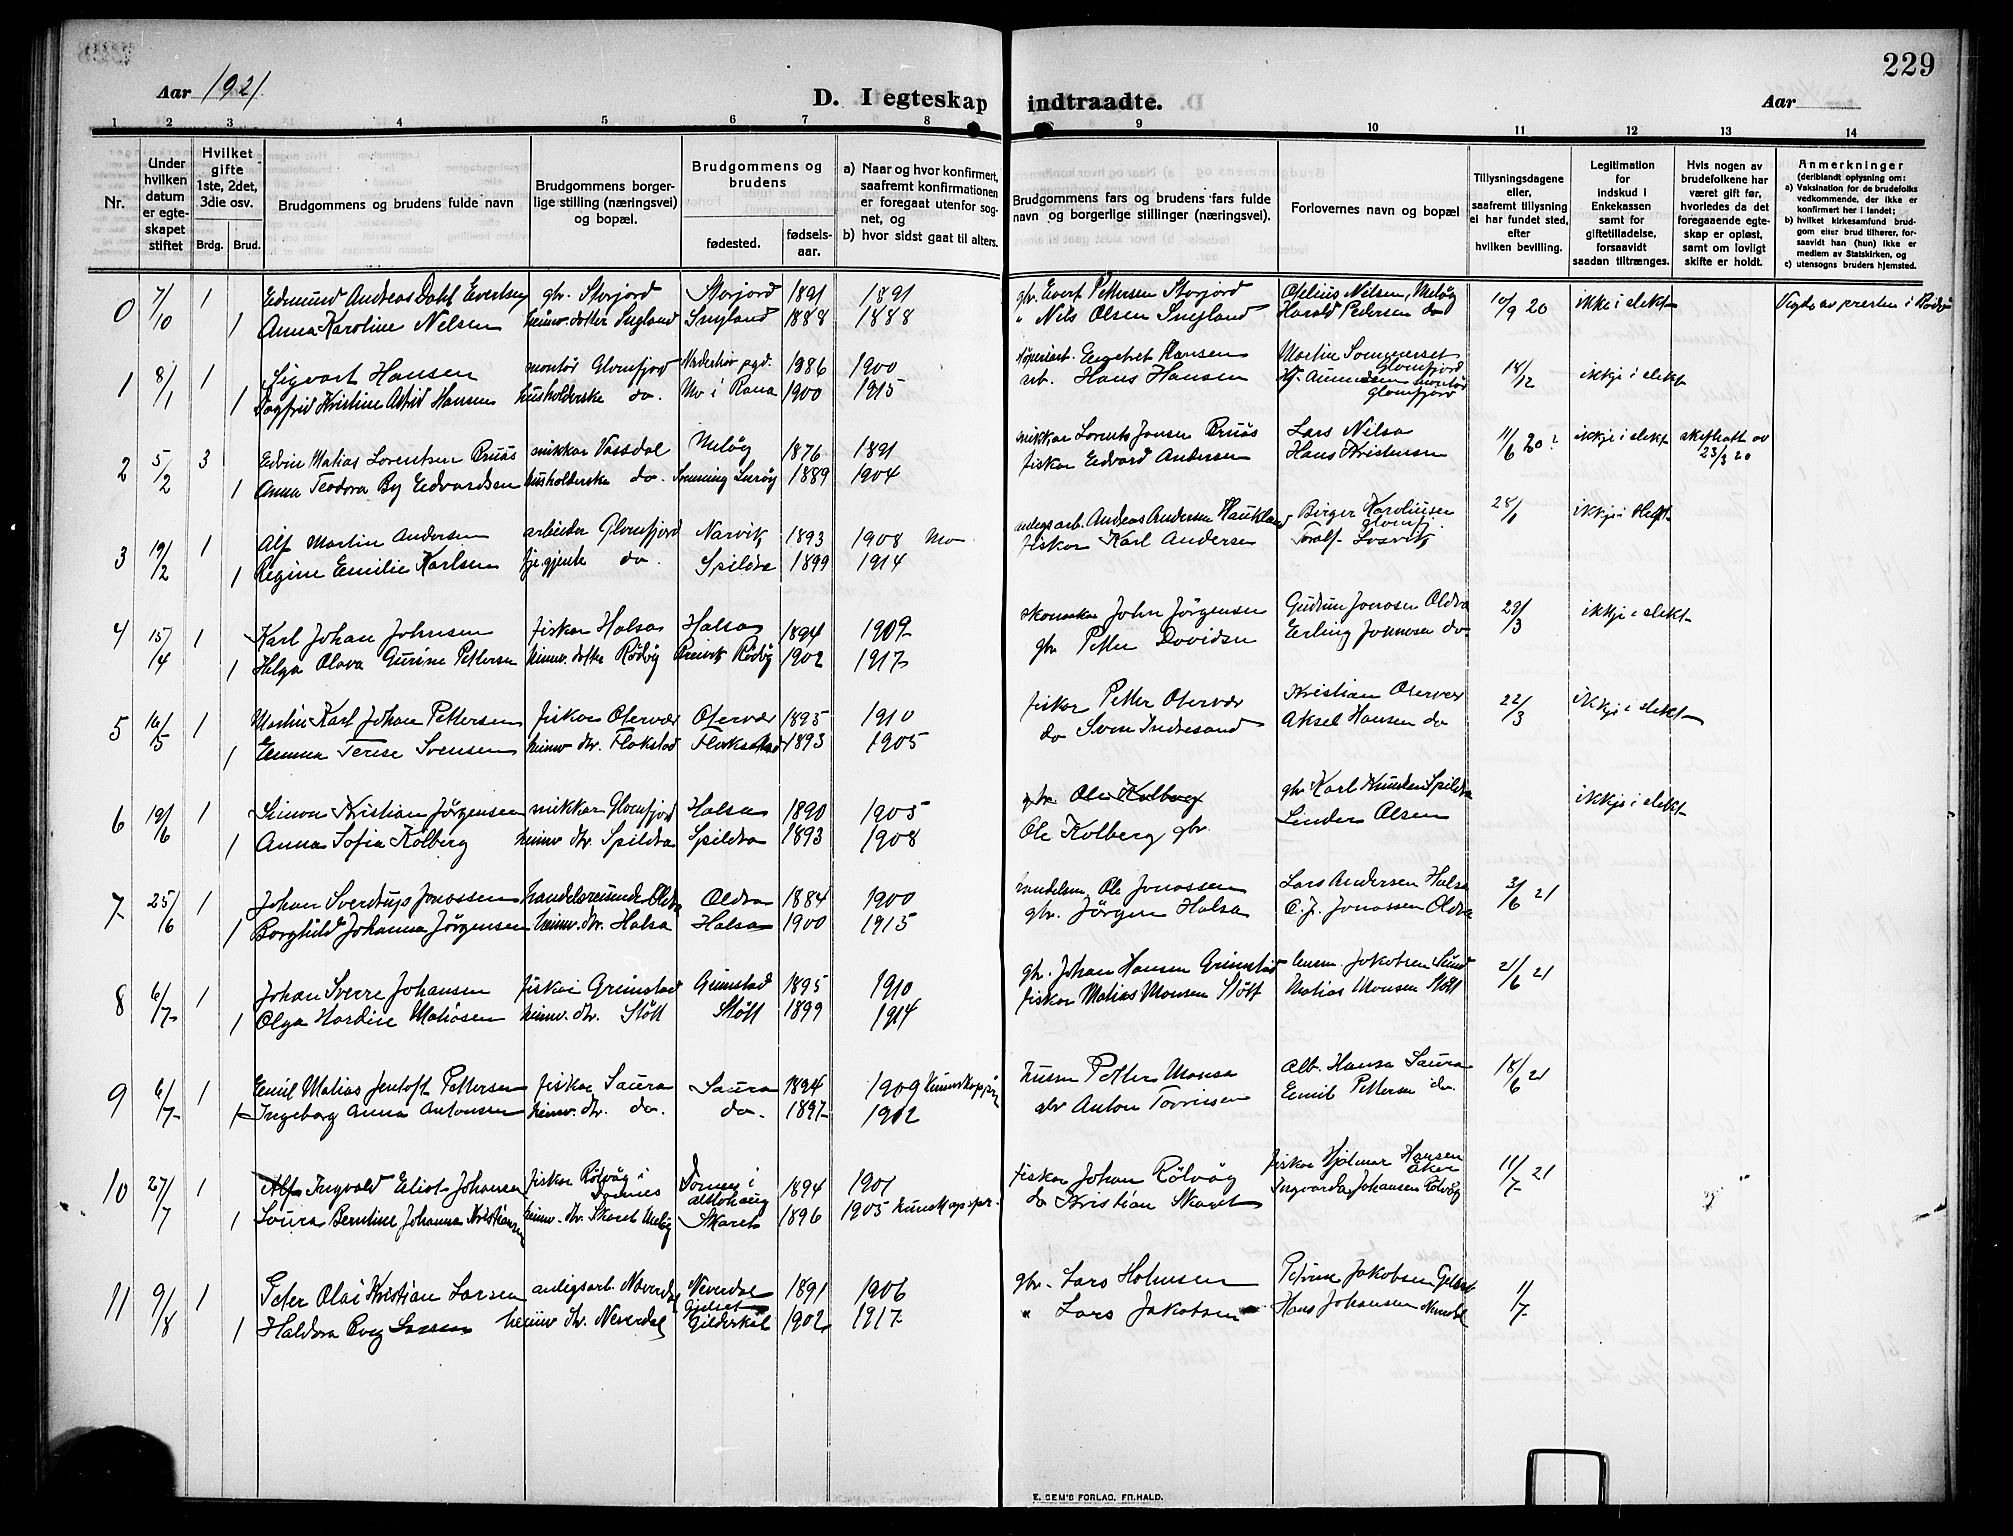 229
Aar 1921
D. I egteskap indtraadte.
Aar
1 2 3 4 5 6 7 8 9 10 11 12 13 14
Nr.
Under hvilken datum er egteskapet stiftet
Hvilket gifte 1ste, 2det, 3die osv.
Brdg. Brud.
Brudgommens og brudens fulde navn
Brudgommens borgerlige stilling (næringsvei) og bopæl.
Brudgommens og brudens
fødested.
fødselsaar.
a) Naar og hvor konfirmert, saafremt konfirmationen er foregaat utenfor sognet, og
b) hvor sidst gaat til alters.
Brudgommens fars og brudens fars fulde navn og borgerlige stillinger (næringsvei).
Forlovernes navn og bopæl
Tillysningsdagene eller, saafremt tillysning ei har fundet sted, efter hvilken bevilling.
Legitimation for indskud i Enkekassen samt for giftetilladelse, forsaavidt saadan tiltrænges.
Hvis nogen av brudefolkene har været gift før, hvorledes da det foregaaende egteskap er opløst, samt om lovligt skifte er holdt.
Anmerkninger (deriblandt oplysning om:
a) Vaksination for de brudefolks vedkommende, der ikke er konfirmert her i landet;
b) hvilket kirkesamfund brudgom eller brud tilhører, forsaavidt han (hun) ikke er medlem av Statskirken, og
c) utensogns bruders hjemsted.
0 7/10 1 Edmund Andreas Dahl Evertsen gbr. Storjord Storjord 1891 1891 gbr. Evert Pettersen Storjord Nilsen, Meløy 10/9 20 ikke i slekt Vigde av presten i Rødøy
1 Anna Karoline Nelsen heimv. dotter Snyland Snyland 1888 1888 " Nils Olsen Snyland Harald Pedersen do
1 8/1 1 Sigvart Hansen montør Glomfjord 1886 1900 Engebret Hansen Martin Sommerset Glomfjord 18/12 ikkje i slekt
1 Dagfrid Kristine Astrid Hansen husholderske do. Mo i Rana 1900 1915 arb. Hans Hansen montør Glomfjord
2 5/2 3 Edvin Matias Lorentsen Bruås snikkar Vassdal Meløy 1876 1891 snikkar Lorents Jonsen Bruås Lars Nilsa 11/6 20 ikkje i slekt skifthatt av 23/3 20
1 Anna Teodora By Edvardsen husholderske do. Lurøy 1889 1904 fiskar Edvard Andersen Hans Kristensen
3 19/2 1 Alf Martin Andersen arbeider Glomfjord Narvik 1893 1908 Mo anlegsarb. Andreas Andersen Haukland Birger Karoliussen Glomfj. 28/1 ikkje i slekt
1 Regine Emilie Karlsen tje.gjente do. Spildra 1899 1914 fiskar Karl Andersen Toralf
4 15/4 1 Karl Johan Johnsen fiskar Halsa Halsa 1894 1909 skomakar John Jørgensen Gudrun Jonassen Oldra 29/3 ikkje i slekt
1 Helga Olava Gurine Pettersen heimv. dotter Rødøy Rødøy 1902 1917 gbr Petter Davidsen Erling Johnsen do
5 16/5 1 Martin Karl Johan Pettersen fiskar Otervær Otervær 1895 1910 fiskar Petter Otervær Kristian Otervær 22/3 ikkje i slekt
1 Emma Terese Svensen heimv dtr. Flakstad 1893 1905 do Sven Indresand Aksel Hansen do
6 19/6 1 Simon Kristian Jørgensen snikkar Glomfjord Halsa 1890 1905 gbr Ole Kolberg gbr Karl Knudsen Spildra ikkje i slekt
1 Anna Sofia Kolberg heimv dtr. Spildra Spildra 1893 1908 Ole Kolberg gbr. Linder Olsen
7 25/6 1 Johan Sverdrup Jonassen handelsreisende Oldra Oldra 1884 1900 handelsm. Ole Jonassen Lars Andersen Halsa 3/6 21
1 Borghild Johanna Jørgensen heimv. dtr. Halsa Halsa 1900 1915 gbr. Jørgen Halsa O. J. Jonassen Oldra
8 6/7 1 Johan Sverre Johansen fiskar Grimstad Grimstad 1895 1910 gbr. Johan Hansen Grimstad Jakobsen Sund 21/6 21
1 Olga Hardine Matiasen heimv. dtr. Støtt Støtt 1899 1914 fiskar Matias Monsen Støtt Matias Monsen Støtt
9 6/7 1 Emil Matias Jentoft Pettersen fiskar Saura Saura 1894 1909 husm Petter Monsa Alb. Hansa Saura 18/6 21
1 Ingeborg Anna Antonsen heimv. dtr. do. do. 1897 1912 Anton Emil Pettersen do.
10 27/7 1 Alf Ingvald Eliot Johansen fiskar Rølvåg i Dønnes Dønnes i Alstahaug 1894 1901 fiskar Johan Rølvåg fiskar Hjalmar Hansen 11/7 21
1 Laura Berntine Johanna Kristiansen heimv. dtr. Skaret Meløy Skaret 1896 1905 kunskapspr. do Kristian Skaret Ingvarda Johansen Rølvåg
11 9/8 1 Peter Olai Kristian Larsen anlegsarb. Neverdal Neverdal 1891 1906 gbr. Lars Holmsen Petrine Jakobsen 11/7
1 Haldora heimv dtr. Neverdal Gildeskål 1902 1917 " Lars Jakobsen Hans Johansen Neverdal
E. SEM'S FORLAG, FR.HALD.